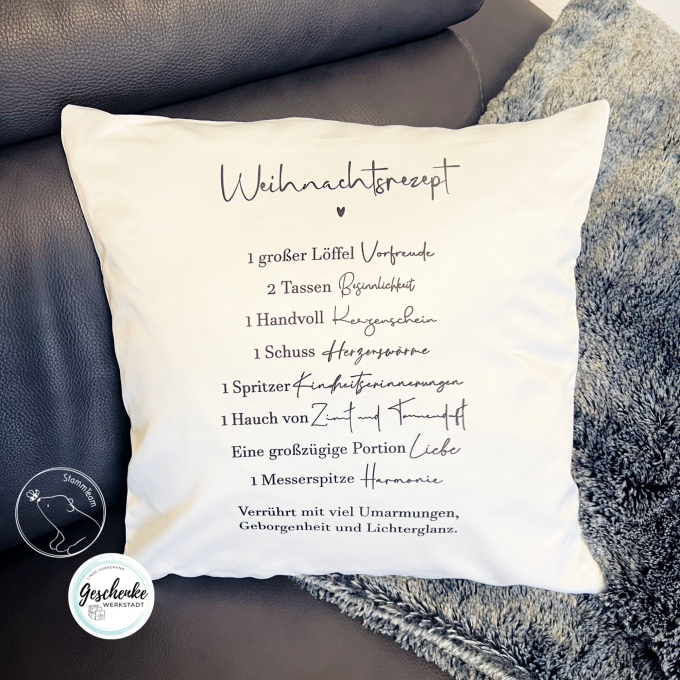 Weihnachtsrezept
1 großer Löffel Vorfreude
2 Tassen Besinnlichkeit
1 Handvoll Kerzenschein
1 Schuss Herzenswärme
1 Spritzer Kindheitserinnerungen
1 Hauch von Zimt und Tannenduft
Eine großzügige Portion Liebe
1 Messerspitze Harmonie
Verrührt mit viel Umarmungen,
Geborgenheit und Lichterglanz.
StammTeam
Geschenke
WERKSTATT